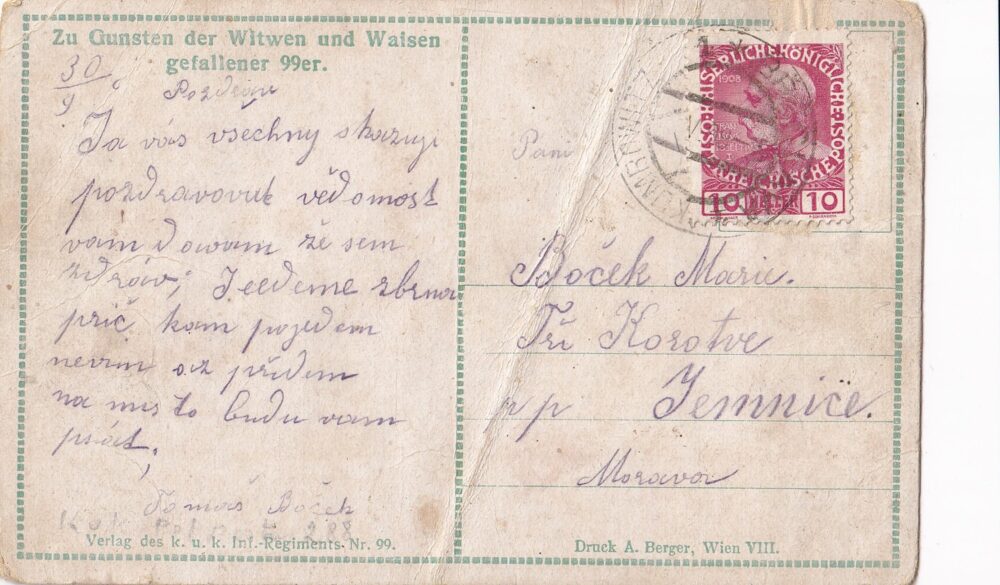 Zu Gunsten der Witwen und Waisen
gefallener 99er.
30/9
Pozdrav
Ja vás všechny skazuji
pozdravovat vědomost
vam dawam že sem
zdráv; Jeedeme z brna
prič kam pojedem
nevim až přidem
na misto budu vam
psát,
Tomaš Boček
Verlag des k. u. k. Inf.-Regiments Nr. 99.
KAISERLICHE KÖNIGLICHE
ÖSTERREICHISCHE POST
1908
10 HELLER 10
KUMROWITZ
Pani
Boček Marie.
Tři Korotve
p Jemnice.
Morava
Druck A. Berger, Wien VIII.